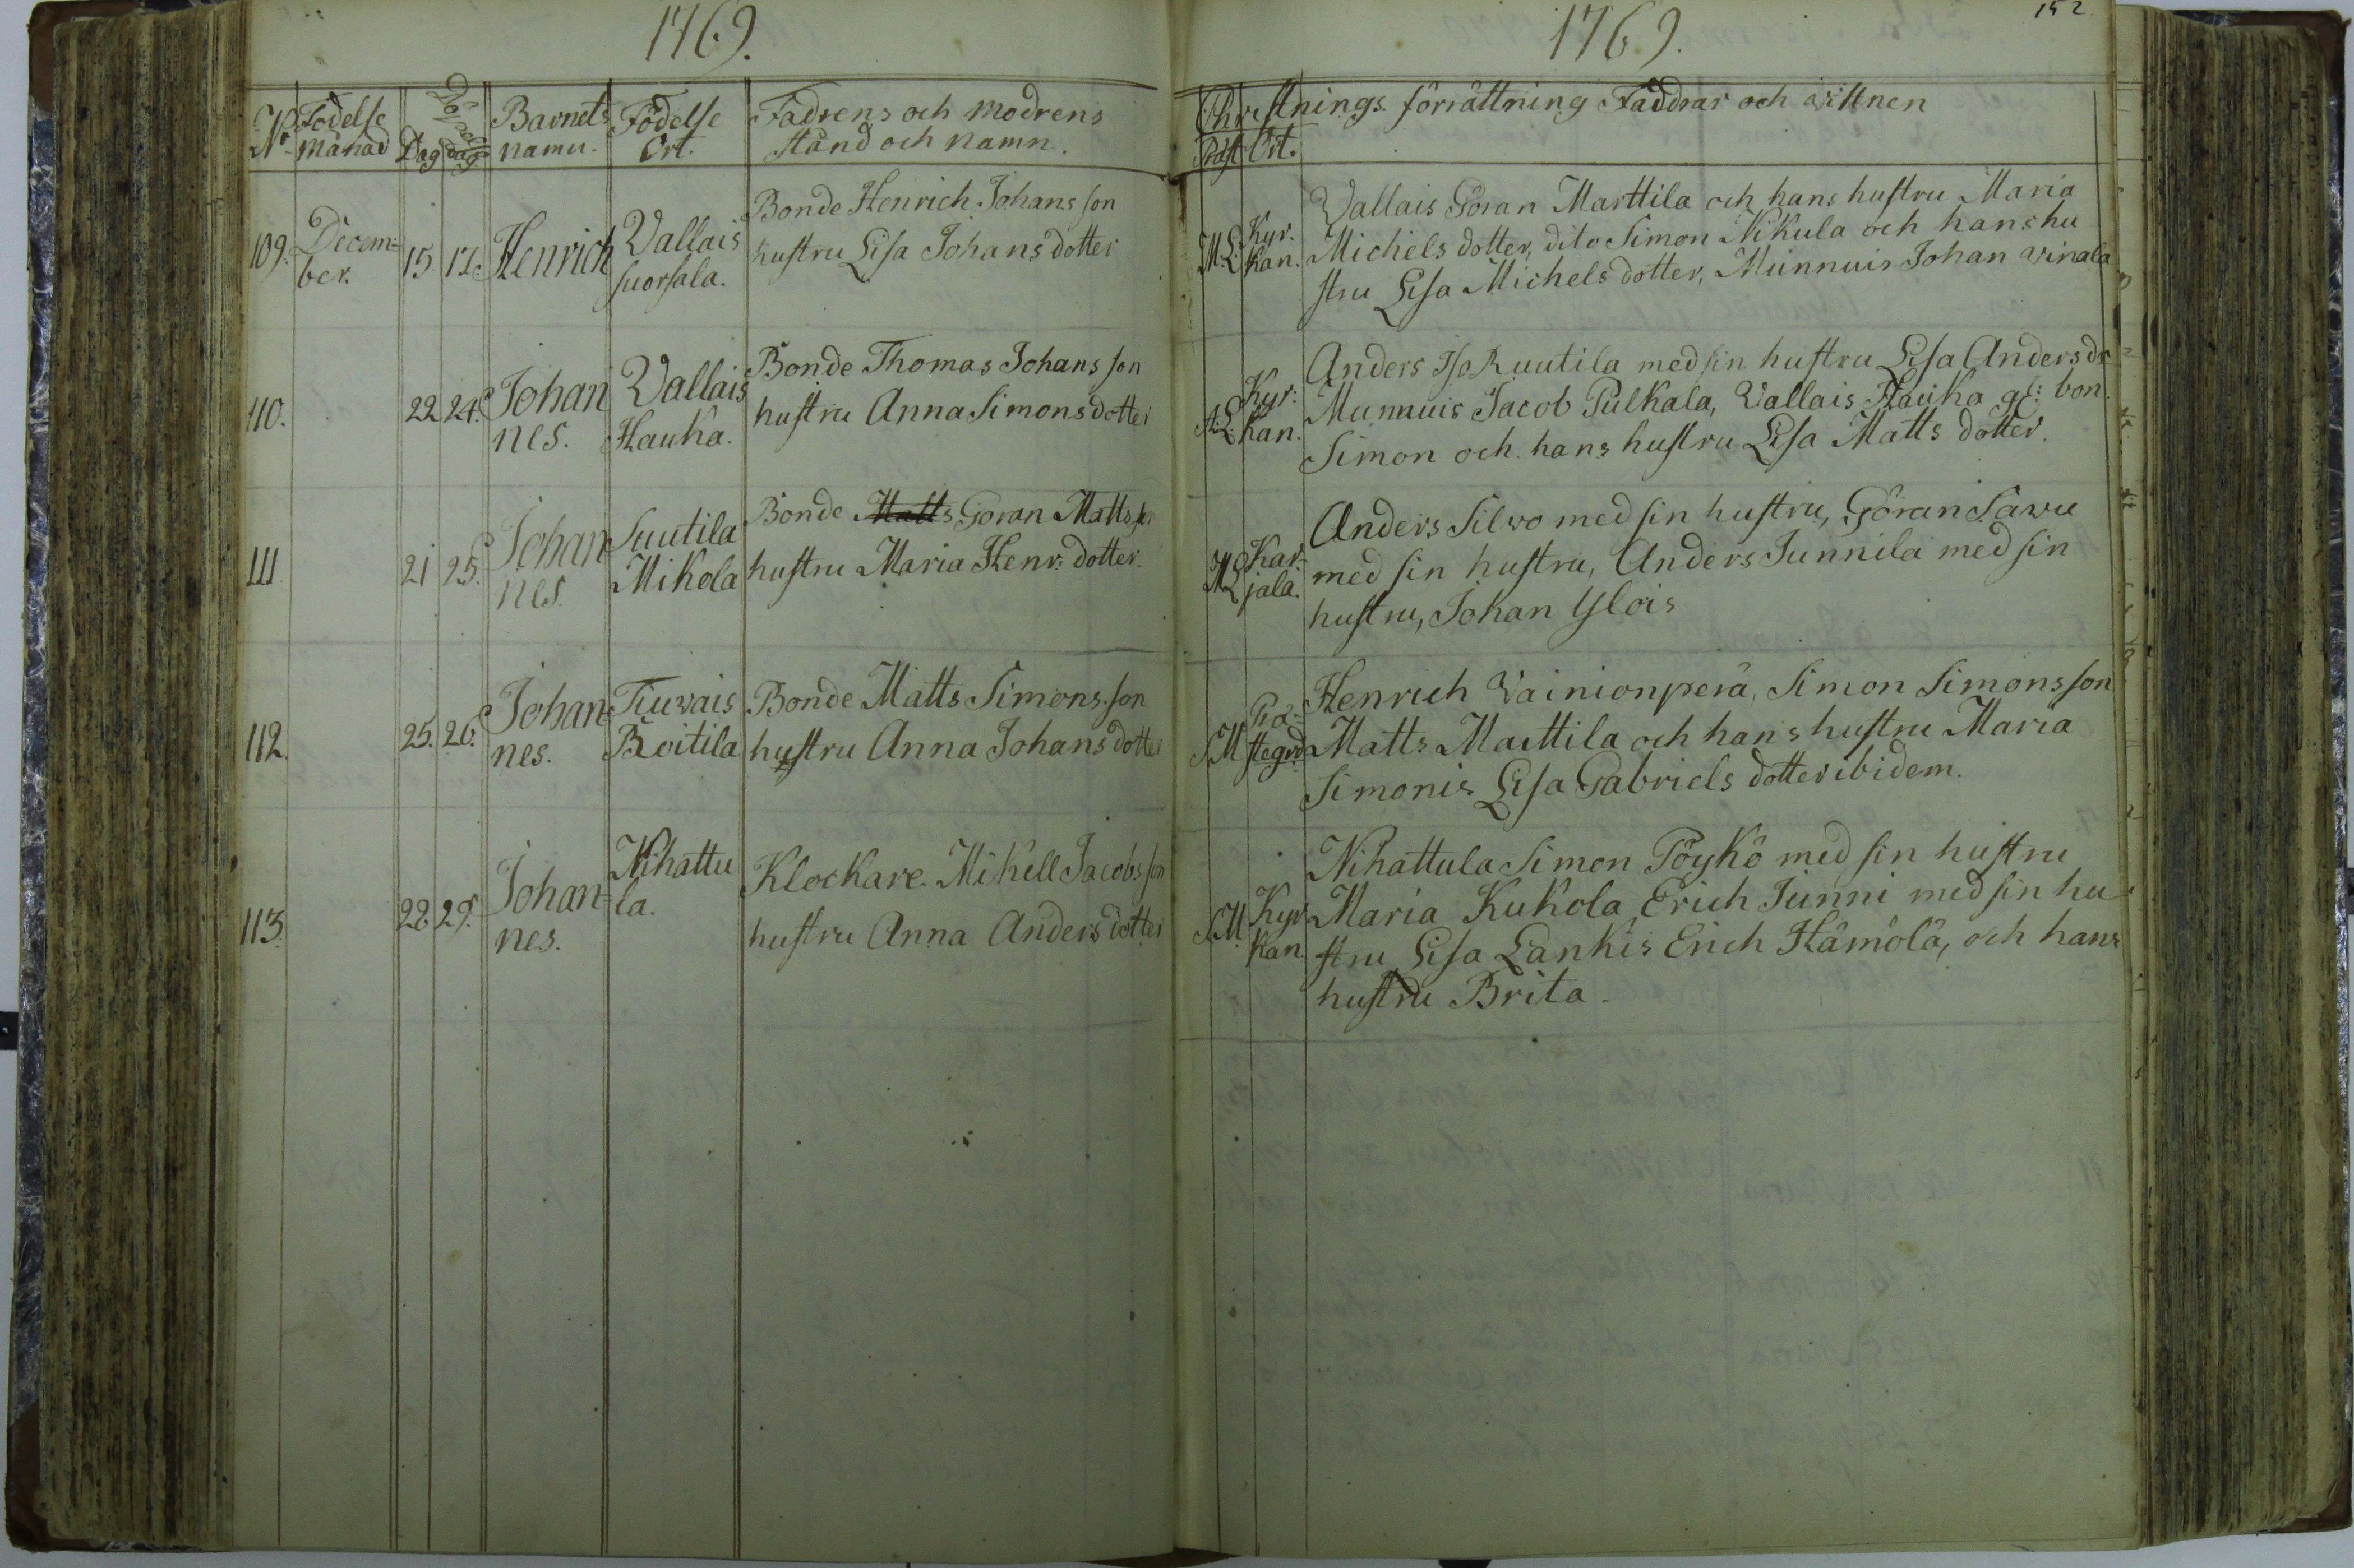 1769.
No Födelse månad Dag Döpelse dag Barnets namn. Födelse Ort. Fadrens och modrens stånd och namn.
109. Decem= ber. 15 17. Henrich Vallais suorsala. Bonde Henrich Johans son
hustru Lisa Johans dotter
110. 22 24. Johan nes. Vallais Hauka. Bonde Thomas Johans son
hustru Anna Simons dotter
111 21 25. Johan nes. Suutila Mikola Bonde Matts Göran Matts son
hustru Maria Henr: dotter.
112. 25. 26. Johan= nes. Tiuvais Roitila Bonde Matts Simons son
hustru Anna Johans dotter
113. 28 29. Johan= nes. Nihattu la. Klockare Mikell Jacobs son
hustru Anna Anders dotter
1769.
152
Christnings förrättning Faddrar och wittnen
Präst Ort.
M.L. Kyr. kan.
Vallais Göran Marttila och hans hustru Maria
Michels dotter, dito Simon Nikula och hans hu
stru Lisa Michels dotter, Munnuis Johan winala
A.L. Kyr: kan.
Anders Iso Ruutila med sin hustru Lisa Anders dr
Munnuis Jacob Pulkala, Vallais Hauka gl: bon.
Simon och hans hustru Lisa Matts dotter.
M.L. Kar= jala.
Anders Silvo med sin hustru, Göran Savu
med sin hustru, Anders Junnila med sin
hustru, Johan Ylois
S.M. Prä= stegrd
Henrich Vainionperä, Simon Simons son
Matts Marttila och hans hustru Maria
Simonis Lisa Gabriels dotter ibidem.
S.M. Kyr kan
Nihattula Simon Pöykö med sin hustru
Maria Kukola, Erich Junni med sin hu
stru Lisa Lankis Erich Hämölä, och hans
hustru Brita.